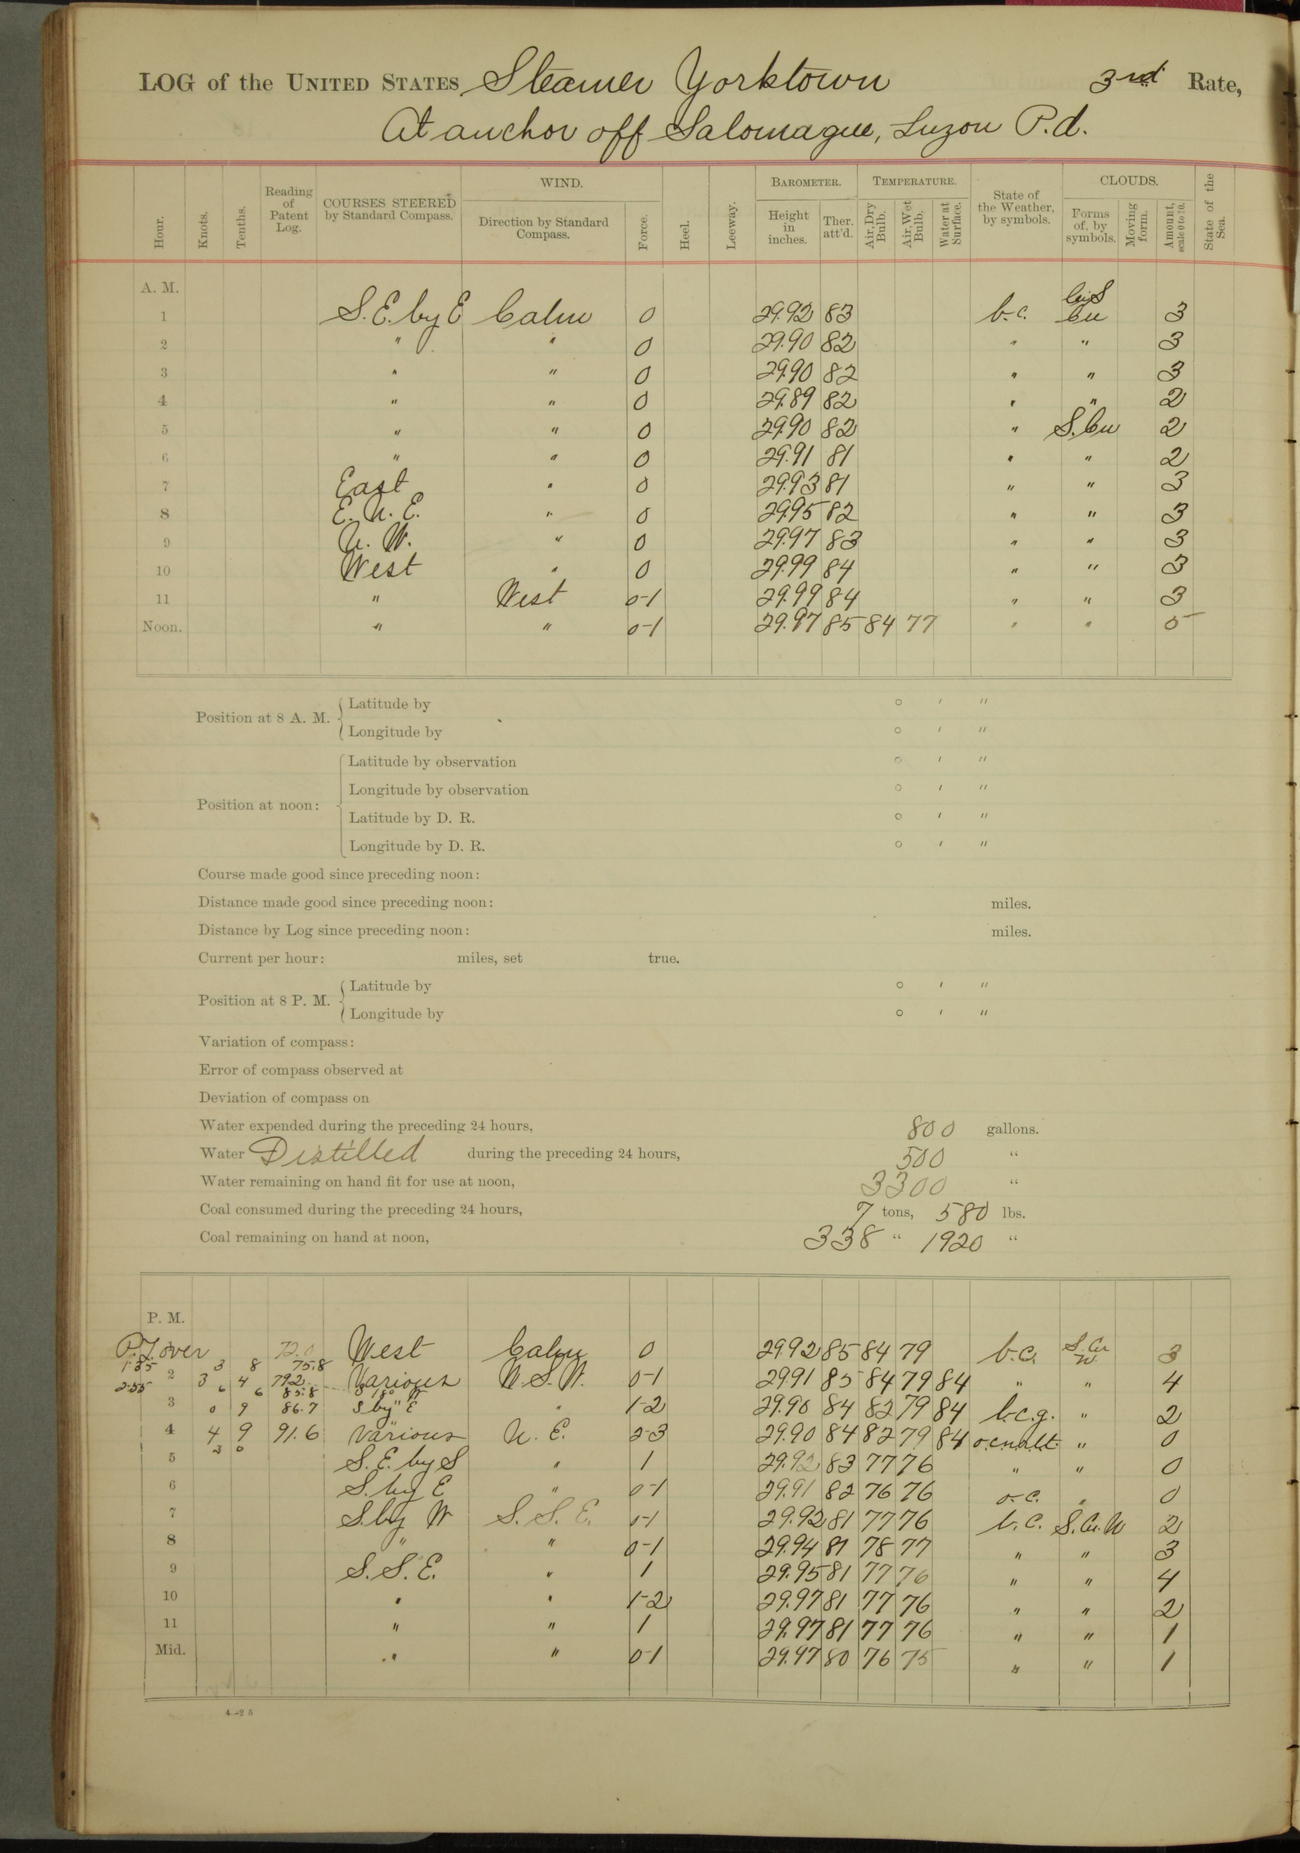 LOG of the UNITED STATES Steamer Yorktown 3rd Rate,
At anchor off Salomague, Luzon P.d.
Hour. Knots. Tenths. Reading of Patent Log. COURSES STEERED by Standard Compass. WIND. Direction by Standard Compass. Force. Heel. Leeway. BAROMETER. Height in inches. Ther. att'd. TEMPERATURE. Air, Dry Bulb. Air, Wet Bulb. Water at Surface. State of the Weather, by symbols. CLOUDS. Forms of, by symbols. Moving form. Amount, scale 0 to 10. State of the Sea.
A. M.
1 S.E. by E Calm 0 29.92 83 b.c. Ci.S Cu 3
2 " " 0 29.90 82 " " 3
3 " " 0 29.90 82 " " 3
4 " " 0 29.89 82 " " 2
5 " " 0 29.90 82 " S.Cu 2
6 " " 0 29.91 81 " " 2
7 East " 0 29.93 81 " " 3
8 E.N.E. " 0 29.95 82 " " 3
9 N.W. " 0 29.97 83 " " 3
10 West " 0 29.99 84 " " 3
11 " West 0-1 29.99 84 " " 3
Noon. " " 0-1 29.97 85 84 77 " " 5
Position at 8 A. M. Latitude by ° ′ ″
Longitude by ° ′ ″
Position at noon: Latitude by observation ° ′ ″
Longitude by observation ° ′ ″
Latitude by D. R. ° ′ ″
Longitude by D. R. ° ′ ″
Course made good since preceding noon:
Distance made good since preceding noon: miles.
Distance by Log since preceding noon: miles.
Current per hour: miles, set true.
Position at 8 P. M. Latitude by ° ′ ″
Longitude by ° ′ ″
Variation of compass:
Error of compass observed at
Deviation of compass on
Water expended during the preceding 24 hours, 800 gallons.
Water Distilled during the preceding 24 hours, 500 "
Water remaining on hand fit for use at noon, 3300 "
Coal consumed during the preceding 24 hours, 7 tons, 580 lbs.
Coal remaining on hand at noon, 338 " 1920 "
P. M.
P.L over 72.0 West Calm 0 29.92 85 84 79 b.c. S.Cu N. 3
1.35 3 8 75.8
2 3 4 79.2 Various W.S.W. 0-1 29.91 85 84 79 84 " " 4
2.55 6 6 85.8
3 0 9 86.7 S by E " 1-2 29.90 84 82 79 84 b.c.g. " 2
4 4 9 91.6 Various N.E. 2-3 29.90 84 82 79 84 " 0
3 0
5 S.E. by S " 1 29.92 83 77 76 " " 0
6 S. by E " 0-1 29.91 82 76 76 o.c. " 0
7 S by W S.S.E. 0-1 29.92 81 77 76 b.c. S.Cu.N 2
8 " " 0-1 29.94 81 78 77 " " 3
9 S.S.E. " 1 29.95 81 77 76 " " 4
10 " " 1-2 29.97 81 77 76 " " 2
11 " " 1 29.97 81 77 76 " " 1
Mid. " " 0-1 29.97 80 76 75 " " 1
4—25